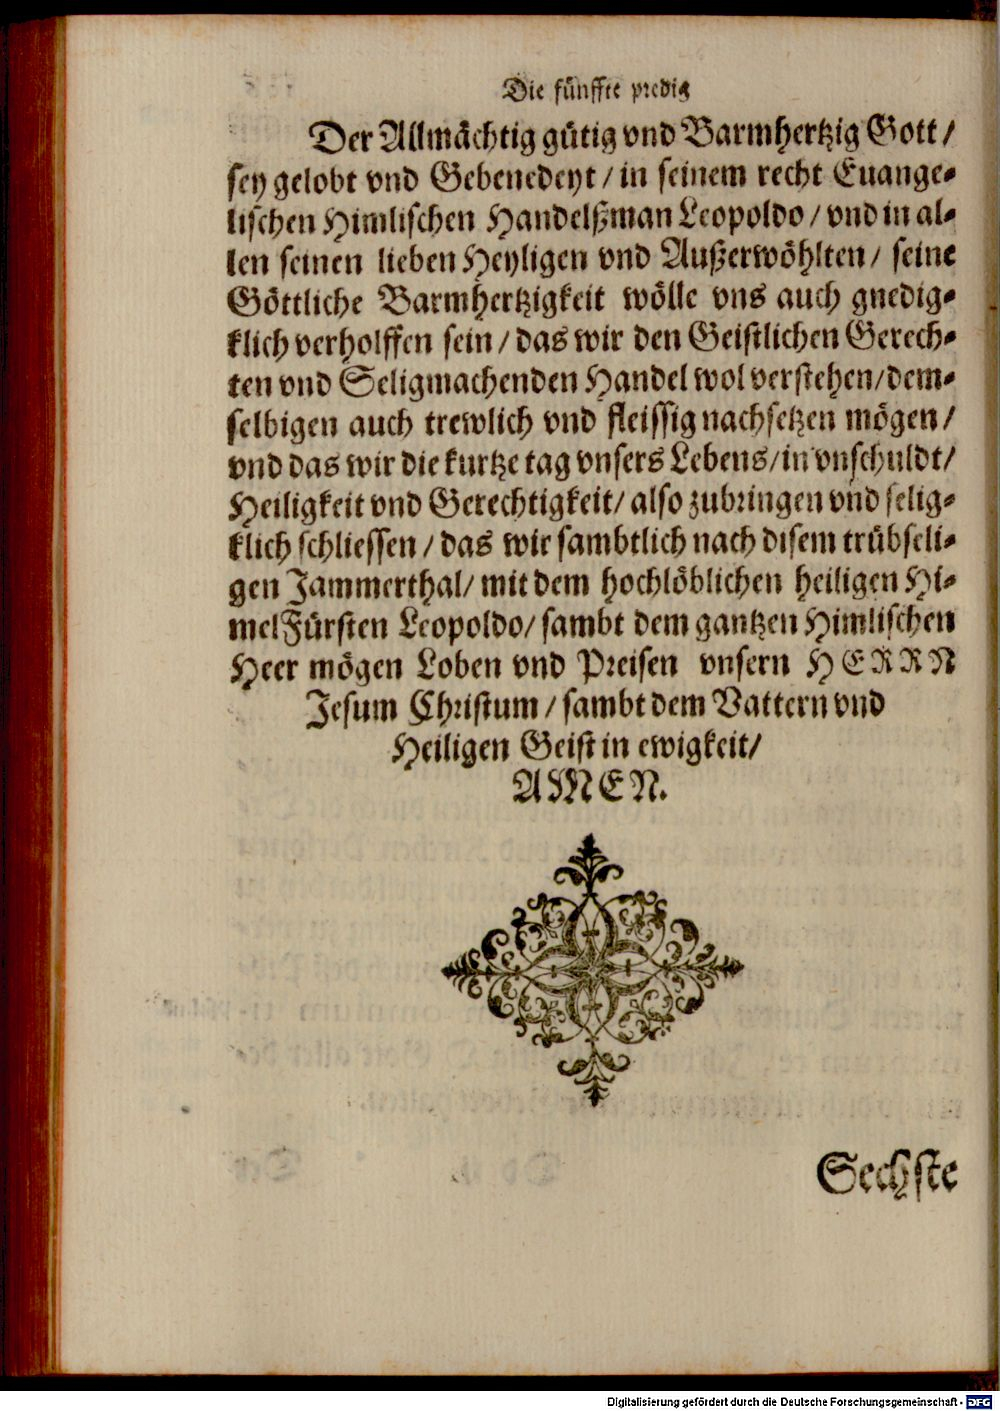 Die fünffte predig
Der Allmächtig gütig vnd Barmhertzig Gott /
sey gelobt vnd Gebenedeyt / in seinem recht Euange⸗
lischen Himlischen Handelßman Leopoldo / vnd in al⸗
len seinen lieben Heyligen vnd Außerwöhlten / seine
Göttliche Barmhertzigkeit wölle vns auch gnedig⸗
klich verholffen sein / das wir den Geistlichen Gerech⸗
ten vnd Seligmachenden Handel wol verstehen / dem⸗
selbigen auch trewlich vnd fleissig nachsetzen mögen /
vnd das wir die kurtze tag vnsers Lebens / in vnschuldt /
Heiligkeit vnd Gerechtigkeit / also zubringen vnd selig⸗
klich schliessen / das wir sambtlich nach disem trübseli⸗
gen Jammerthal / mit dem hochlöblichen heiligen Hi⸗
melFürsten Leopoldo / sambt dem gantzen Himlischen
Heer mögen Loben vnd Preisen vnsern HERRN
Jesum Christum / sambt dem Vattern vnd
Heiligen Geist in ewigkeit /
AMEN.
Sechste
Digitalisierung gefördert durch die Deutsche Forschungsgemeinschaft - DFG